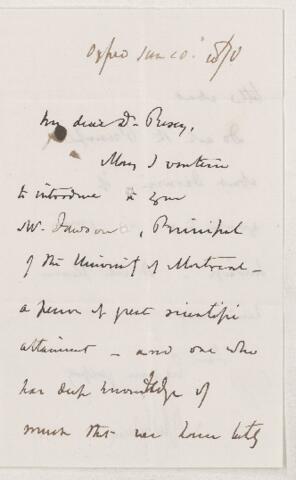 Oxford Jun 20. 1870
My dear Dr. Pusey,
May I venture
to introduce to you
Mr. Dawson, Principal
of the University of Montreal –
a person of great scientific
attainment – and one who
has deep knowledge of
much that we have lately